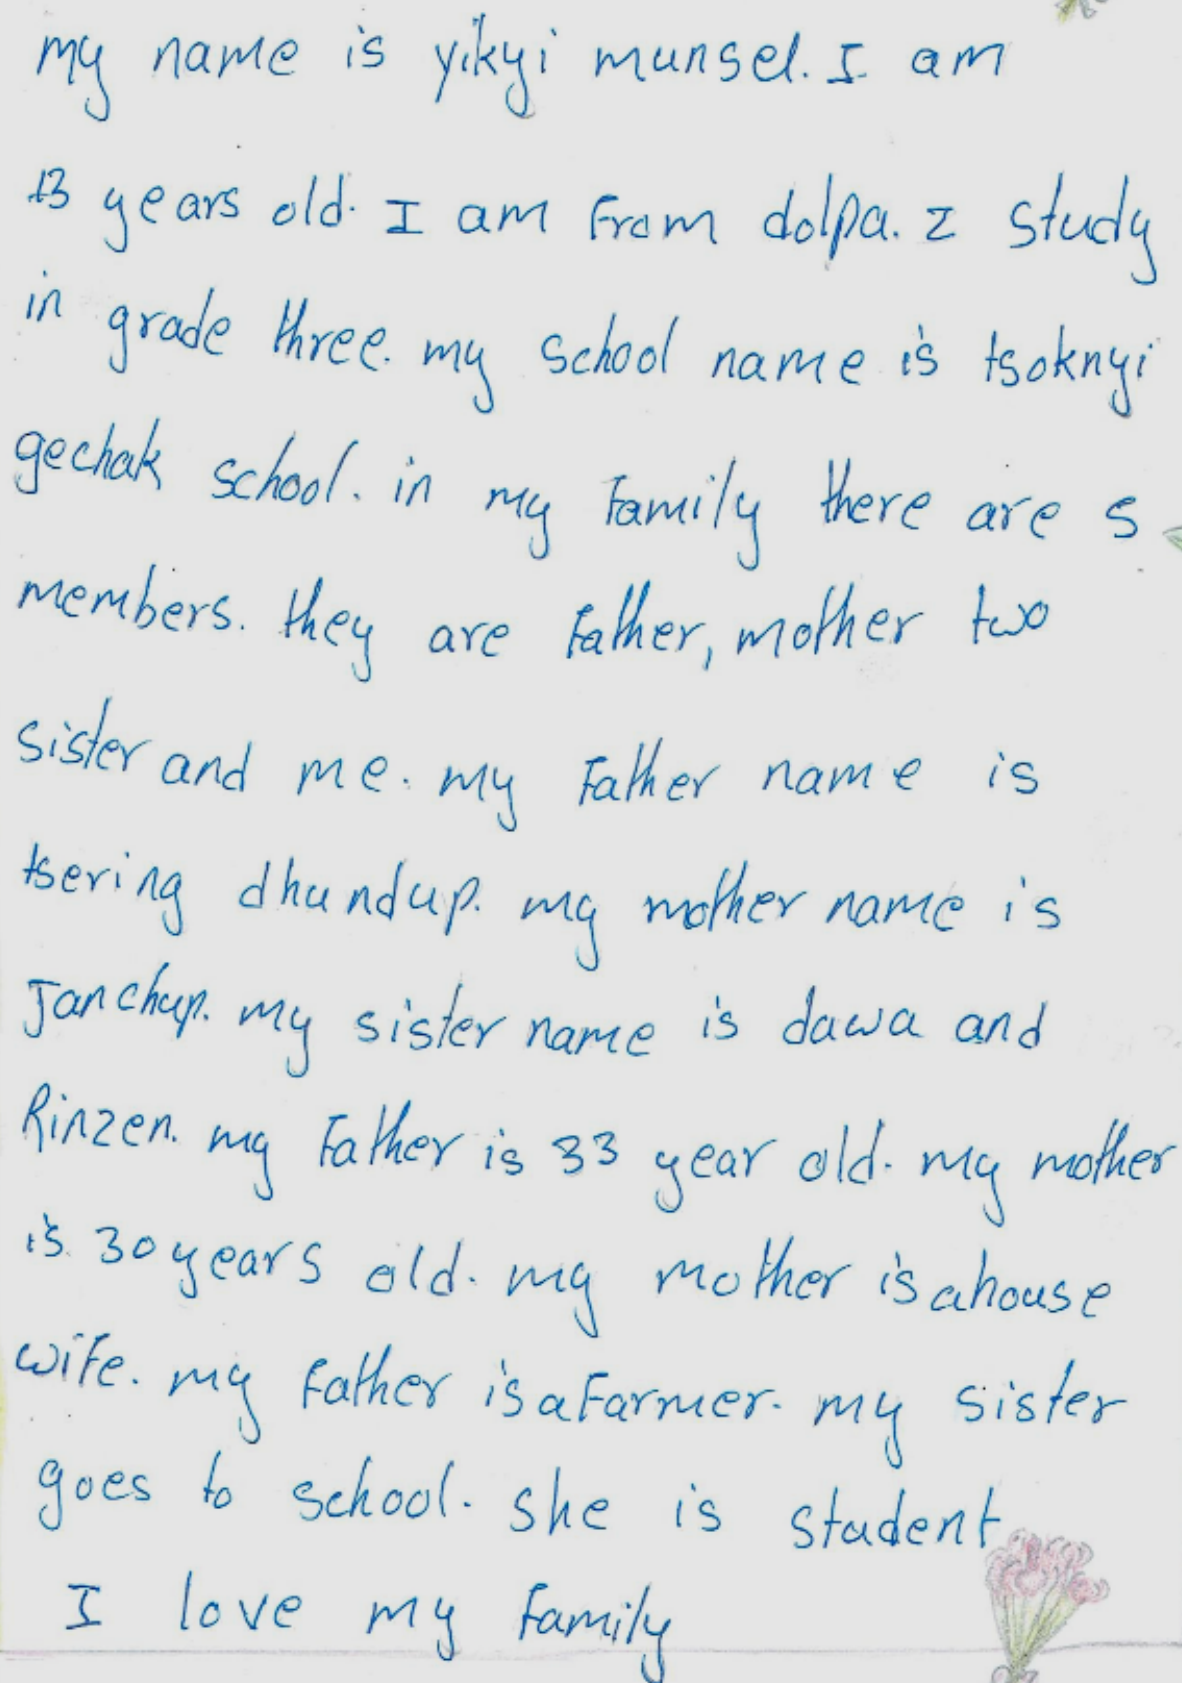 my name is yikyi munsel. I am
13 years old. I am From dolpa. I study
in grade three. my school name is tsoknyi
gechak school. in my Family there are 5
members. they are Father, mother two
sister and me. my Father name is
tsering dhundup. my mother name is
Janchup. my sister name is dawa and
Rinzen. my Father is 33 year old. my mother
is 30 years old. my mother is a house
wife. my Father is a Farmer. my sister
goes to school. she is student
I love my Family